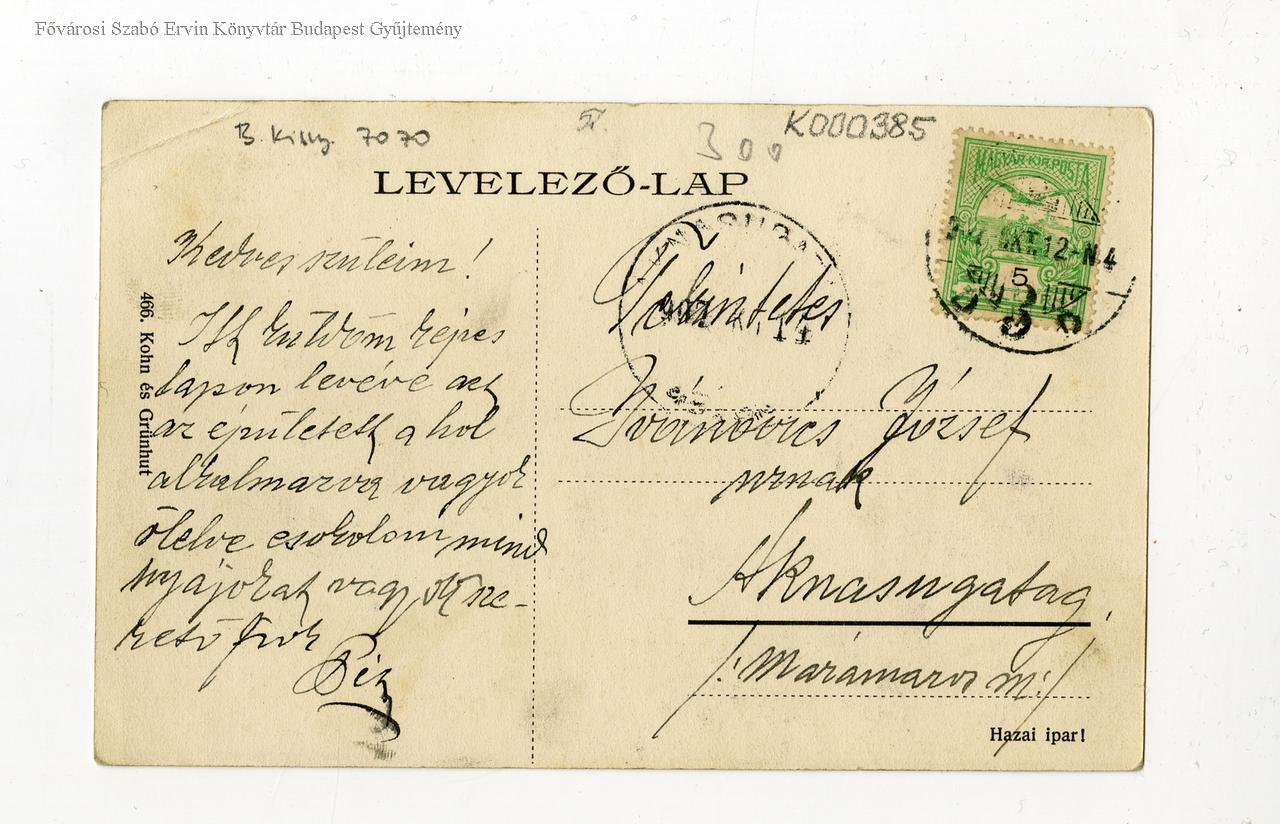 Fővárosi Szabó Ervin Könyvtár Budapest Gyűjtemény
7070
IV.
300
K000385
LEVELEZŐ-LAP
MAGYAR KIR. POSTA
OKT.12-N.4
5
11
466. Kohn és Grünhut
Kedves szüleim!
Itt küldöm képes
lapon levéve azt
az épületett a hol
alkalmazva vagyok
ölelve csokolom mind
nyájokat vagyok sze-
rető fiok
Tekintetes
Ivánovics József
urnak
Aknasugatag,
/: Marámaros m:/
Hazai ipar!